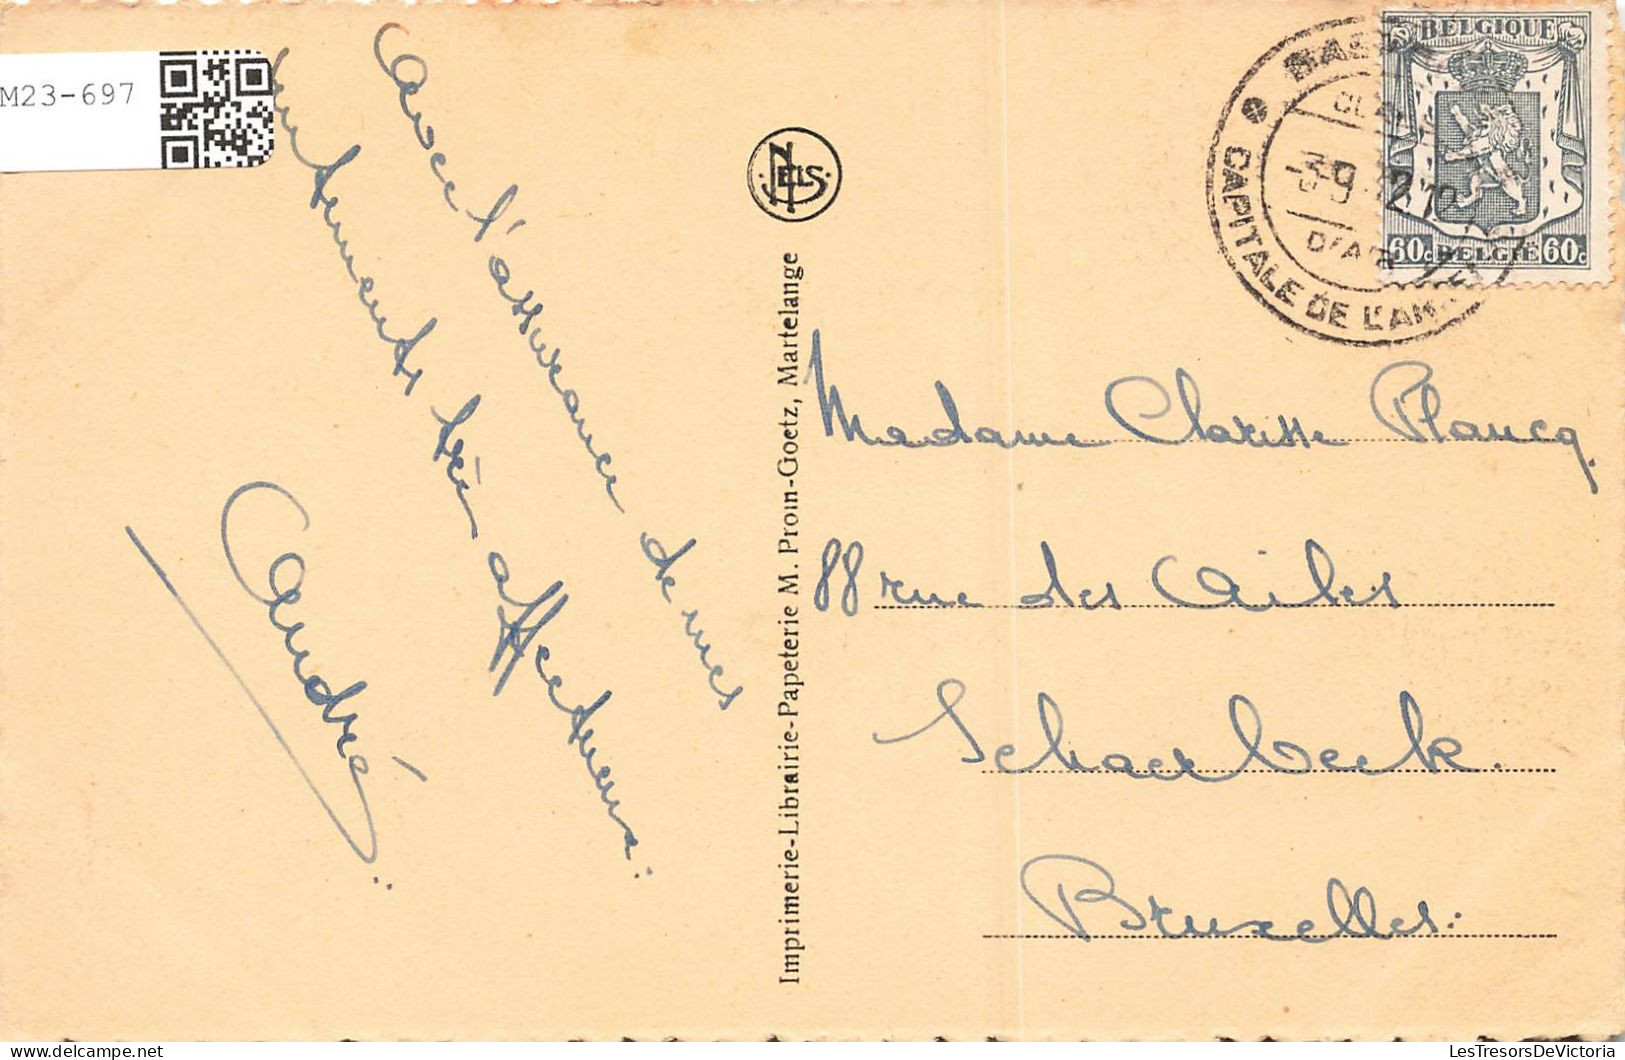 M23-697
Avec l'assurance de mes
sentiments très affectueux.
André
NELS
Imprimerie-Librairie-Papeterie M. Prom-Goetz, Martelange
CAPITALE DE L'AR
BELGIQUE
60c BELGIË 60c
Madame Clarisse Plancq.
88 rue des Ailes
Schaerbeek.
Bruxelles.
LesTresorsDeVictoria